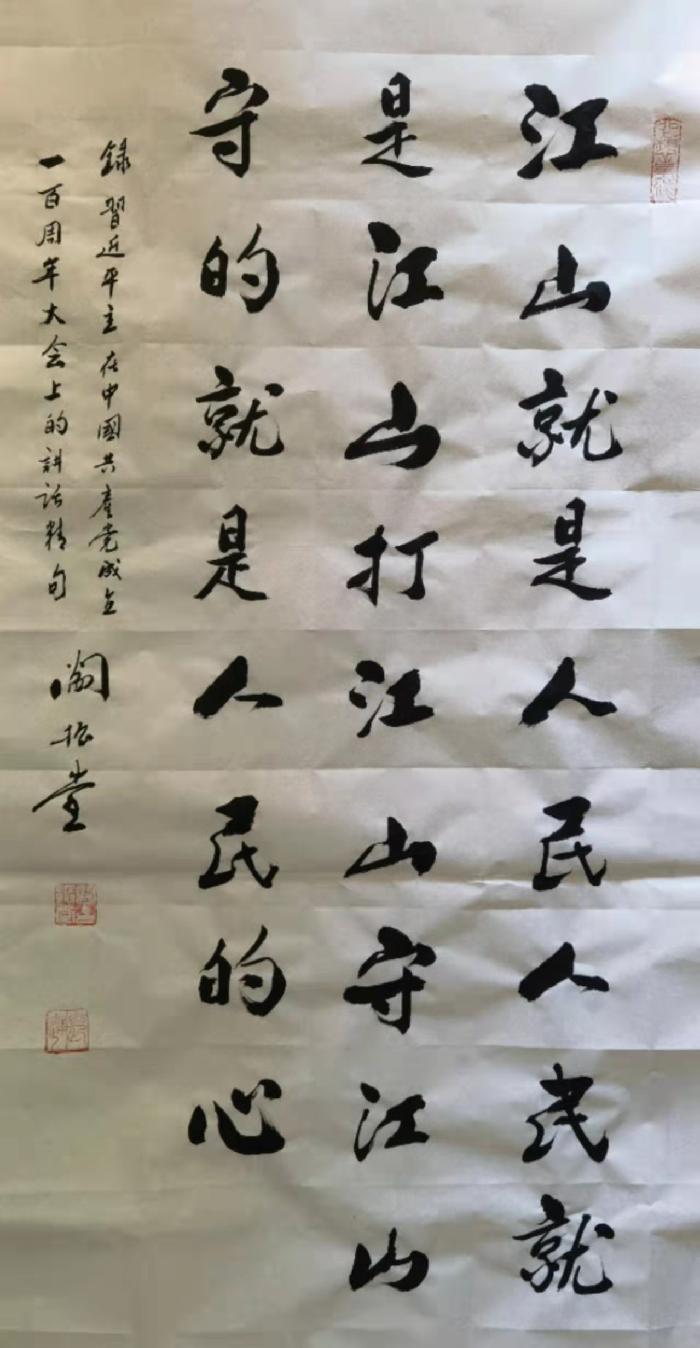 江山就是人民人民就
是江山打江山守江山
守的就是人民的心
錄習近平主在中國共產党成立
一百周年大会上的講话精句
阚振堂